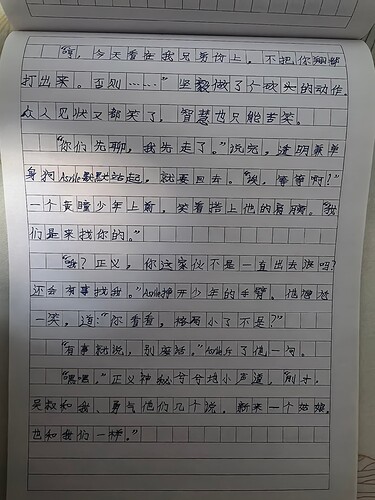 "哼，今天看在我兄弟份上，不把你翔都
打出来。否则……"坚毅做了个砍头的动作。
众人见状又都笑了，智慧也只能苦笑。
"你们先聊，我先走了。"说完，透明
身狗Agile默默站起，就要回去。"唉，等等啊？"
一个黄瞳少年上前，笑着搭上他的肩膀。"我
们是来找你的。"
"我？正义，你这家伙不是一直出去浪吗？
还会有事找我。"Agile掸开少年的手臂。
一笑，道："你看看，格局小了不是？"
"有事就说，别废话。"Agile斥了他一句。
"嘿嘿。"正义神秘兮兮地小声道，"刚才，
吴叔和我、勇气他们几个说，新来一个姑娘，
也和我们一样。"